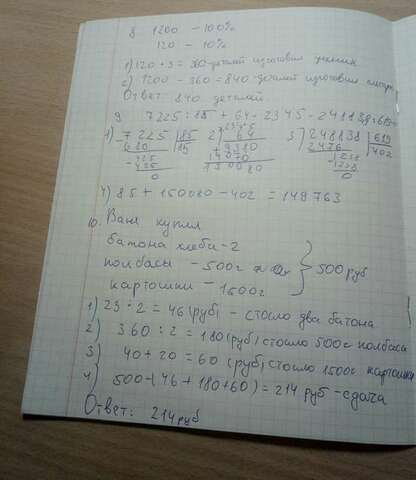 8. 1200 - 100%
120 - 10%
1) 120 * 3 = 360 деталей изготовил ученик
2) 1200 - 360 = 840 деталей изготовил мастер
Ответ: 840 деталей
9. 7225 : 85 + 64 * 2345 - 248838 : 619 =
1) 7225 | 85
680 | 85
425
425
0
2) 2345
64
9380
14070
150080
3) 248838 | 619
2476 | 402
1238
1238
0
4) 85 + 150080 - 402 = 149763
10. Ваня купил
батона хлеба - 2
колбасы - 500г
картошки - 1500г
500 руб
1) 23 * 2 = 46 (руб) - стоило два батона
2) 360 : 2 = 180 (руб) стоило 500г колбаса
3) 40 + 20 = 60 (руб) стоило 1500г картошки
4) 500 - (46 + 180 + 60) = 214 руб - сдача
Ответ: 214 руб